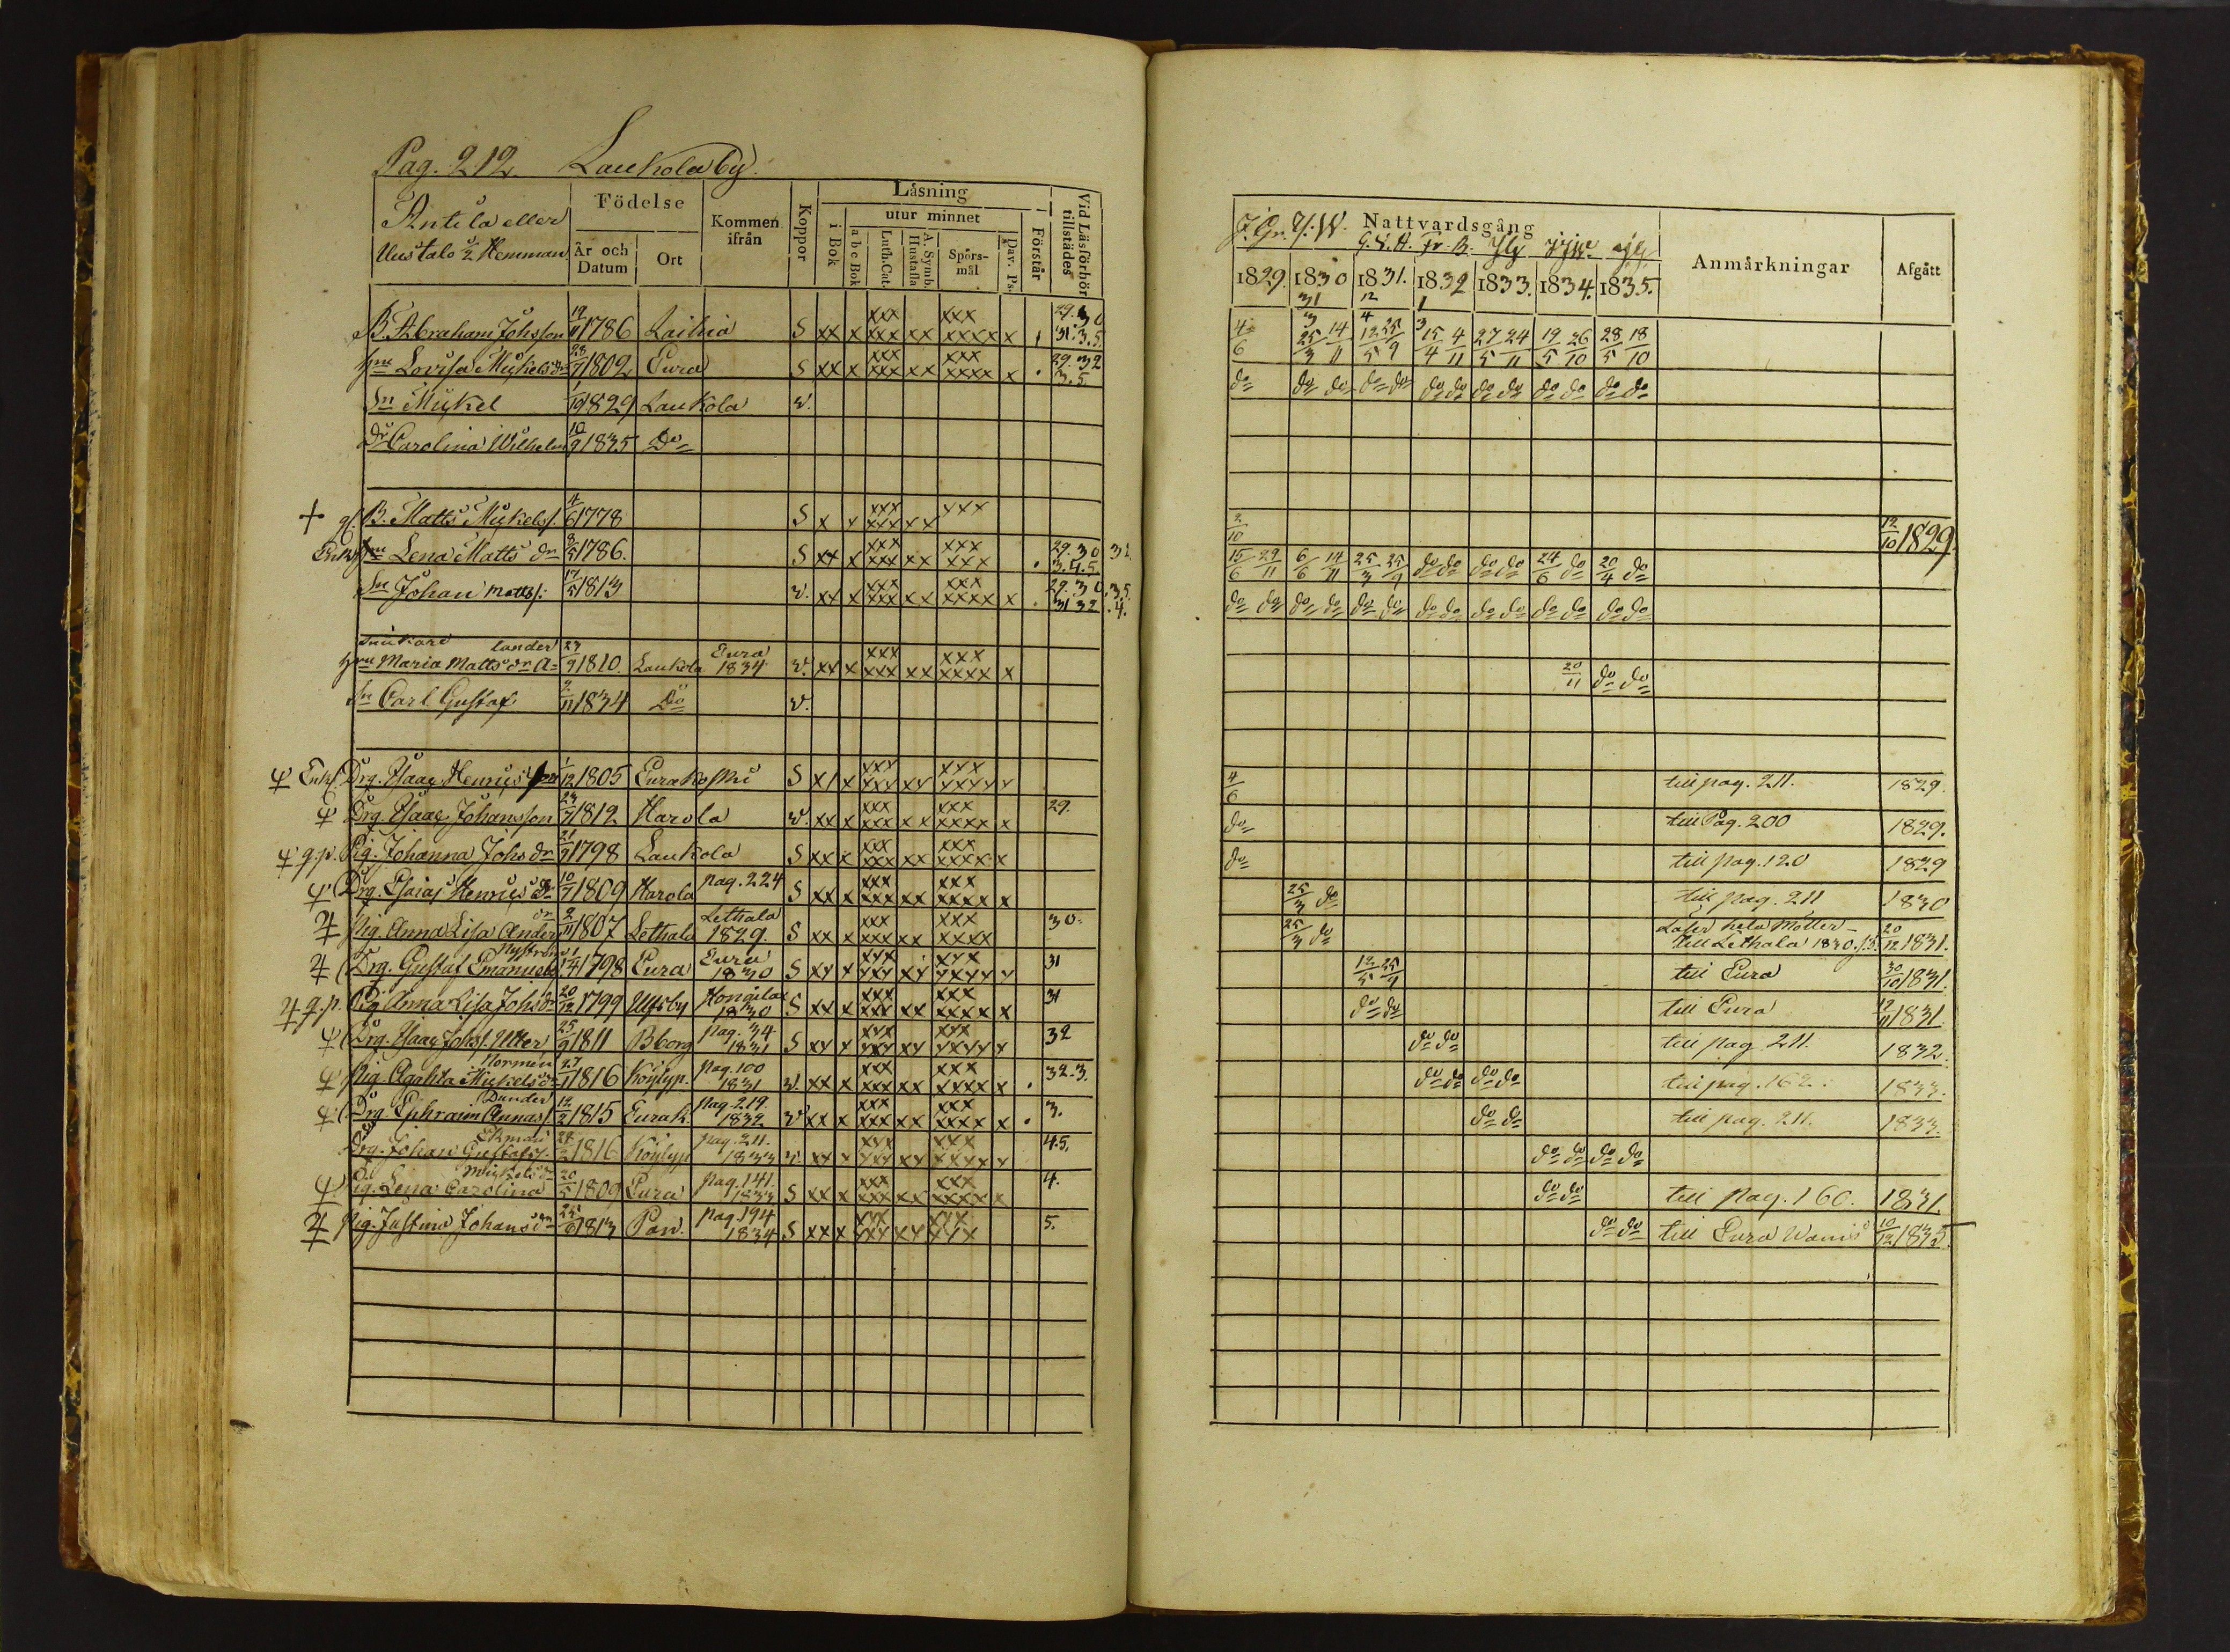 Pag. 212. Laukola by.
Antila eller
Uustalo 1/2 Hemman
Födelse
År och Datum
Ort
Kommen ifrån
Koppor
Läsning
i Bok
utur minnet
a b c Bok
Luth. Cat.
A. Symb. Hustafla
Spörs-mål
Dav. Ps.
Förstår
Vid Läsförhör tillstädes
Nattvardsgång
1829. 1830 1831. 1832 1833. 1834. 1835.
Anmärkningar
Afgått
B. Abraham Johsson 19/11 1786 Laihia S xx x xxx xxx xx xxx xxxx x 29. 30 31. 3. 5. 4/6 25/3 14/11 12/5 25/9 15/4 4/11 27/5 24/11 19/5 26/10 28/5 18/10
Hru Lovisa Mickelsdr 23/7 1802 Eura S xx x xxx xxx xx xxx xxxx x 29. 32 3. 5 do do do do do do do do do do do do do
Sn Mickel 1/10 1829 Laukola v.
Dr Carolina Wilhelm 10/9 1835 Do
+ gl. B. Matts Mickelss. 4/6 1778 S x x xxx xxx xx xxx 2/10 12/10 1829
Enk. Hru Lena Mattsdr 8/5 1786. S xx x xxx xxx xx xxx xxx 29. 30 31. 3. 4. 5 15/6 29/11 6/6 14/11 25/3 25/9 do do do do 24/6 do 20/4 do
Sn Johan Matts. 17/5 1813 v. xx x xxx xxx xx xxx xxxx x 29. 30 .35. 31 32 .4. do do do do do do do do do do do do do do
lander
Hru Maria Matts dr A= 27/9 1810. Laukola Eura 1834 v. xx x xxx xxx xx xxx xxxx x 20/11 do do
Sn Carl Gustaf 2/11 1834 Do v.
Enkl. Drg. Isaac Henricss 1/12 1805 Eurakoski S xx x xxx xxx xx xxx xxxxx 4/6 till pag. 211. 1829.
Drg. Isaac Johansson 23/7 1812 Harola v. xx x xxx xxx xx xxx xxxx x 29. do till Pag. 200 1829.
g.p. Pig. Johanna Johsdr 21/9 1798 Laukola S xx x xxx xxx xx xxx xxxx x do till pag. 120 1829
Drg. Esaias Henrics 10/7 1809 Harola pag. 224 S xx x xxx xxx xx xxx xxxx x 25/3 do till pag. 211 1830
Pig. Anna Lisa Anders dr 2/11 1807 Lethala Lethala 1829. S xx x xxx xxx xx xxx xxxx 30. 25/3 do
till Lethala 1830. 20/12 1831.
Nyström
Drg. Gustaf Emanuels 1798 Eura Eura 1830 S xx x xxx xxx xx xxx xxxx x 31 12/5 25/9 till Eura 30/10 1831.
g.p. Pig Anna Lisa Johsdr 20/12 1799 Ulfsby Hongilax 1830 S xx x xxx xxx xx xxx xxxx x 31 do do till Eura 17/11 1831.
Drg. Isaac Johss. Utter 25/9 1811 Bborg pag. 34 1831 S xx x xxx xxx xx xxx xxxx x 32 do do till pag 211. 1832.
Normén
Pig Agatha Mickelsdr 27/1 1816 Köylyp. pag. 100 1831 v. xx x xxx xxx xx xxx xxxx x 32. 3. do do do do till pag. 162. 1833.
Dander
Drg Ephraim Annass. 12/2 1815 Eurak. pag. 219. 1832 v xx x xxx xxx xx xxx xxxx x 3. do do till pag. 211. 1833.
Ekman
Drg. Johan Gustafss. 28/2 1816 Köylyp pag. 211. 1833 v. xx x xxx xxx xx xxx xxxx x 4.5. do do do do
Mickelsdr
Pig. Lena Carolina 20/5 1809 Eura pag. 141. 1833 S xx x xxx xxx xx xxx xxxx x 4. do do till pag. 160. 1831.
Pig. Justina Johansdr 25/9 1813 Pan. pag. 194 1834 S xx x xxx xxx xx xxx xxx 5. do do till Eura 10/12 1835.